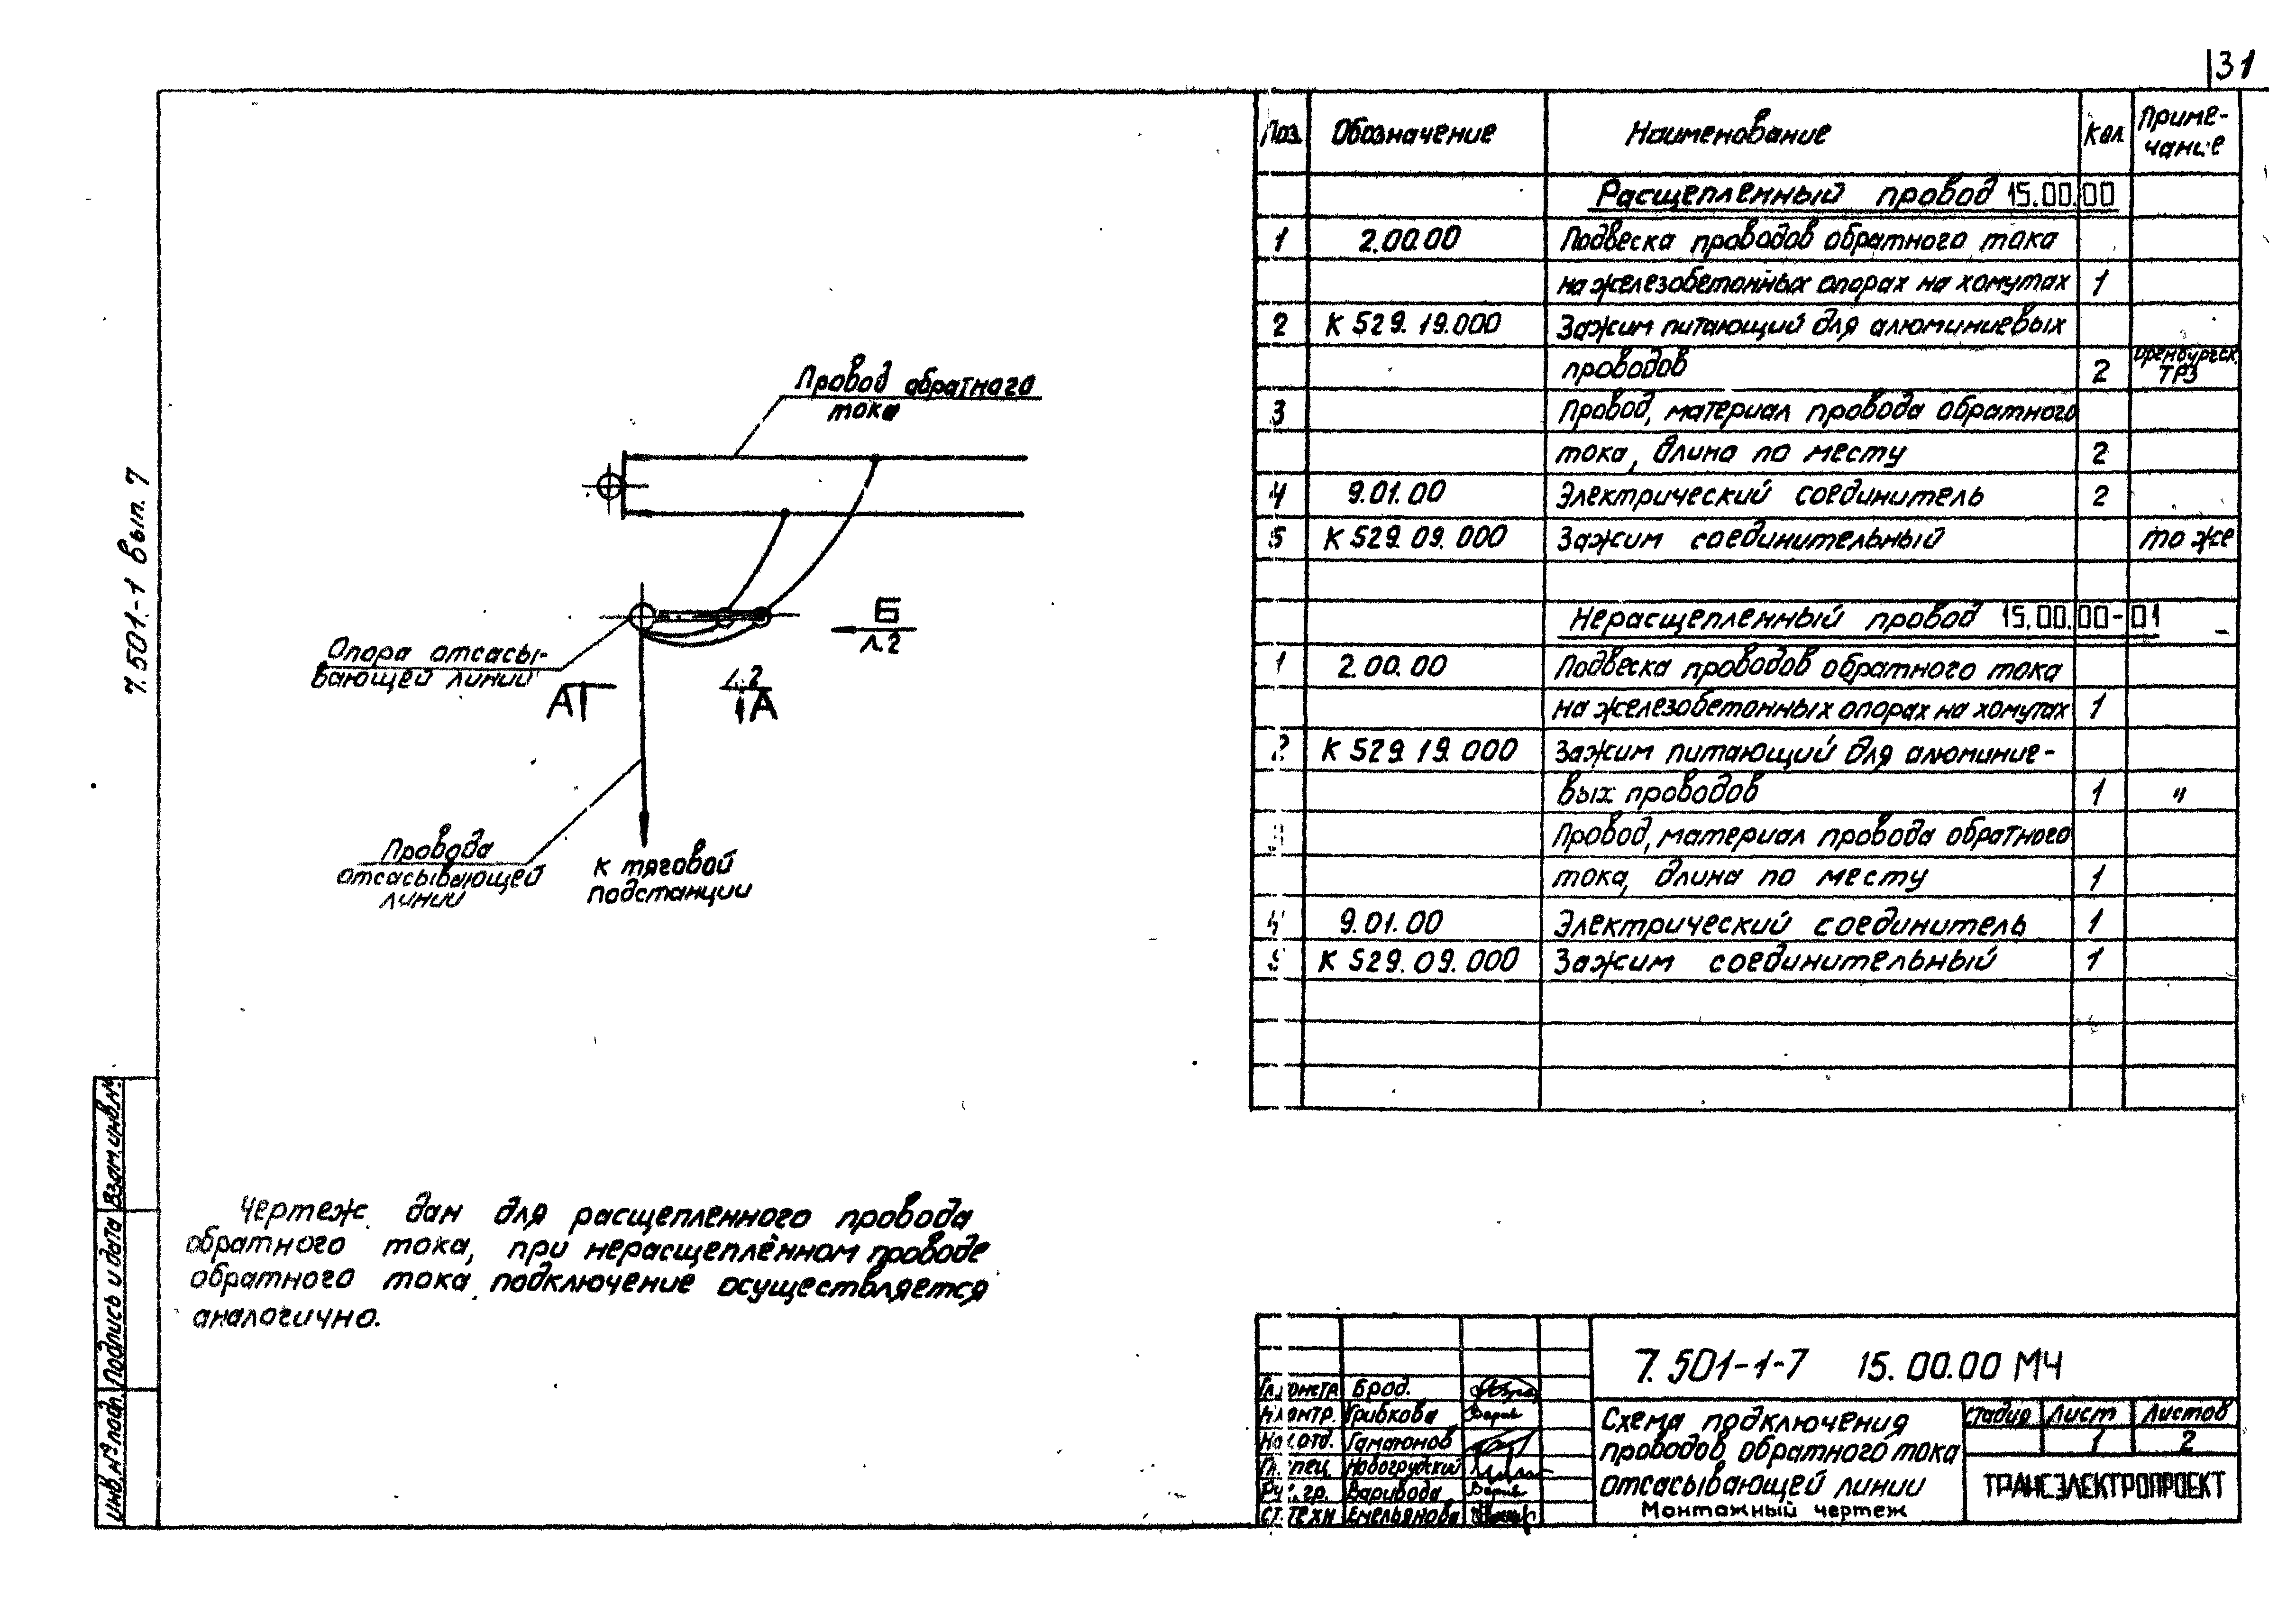 31
7.501-1 Вып. 7
Провод обратного
тока
Б
Л.2
Опора отсасы-
вающей линии
А
Л.2
А
Провода
отсасывающей
линии
К тяговой
подстанции
Чертеж дан для расщепленного провода
обратного тока, при нерасщеплённом проводе
обратного тока подключение осуществляется
аналогично.
Поз. Обозначение Наименование Кол Приме-
чание
Расщепленный провод 15.00.00
1 2.00.00 Подвеска проводов обратного тока
на железобетонных опорах на хомутах 1
2 К 529.19.000 Зажим питающий для алюминиевых
проводов 2 Оренбургск. ТРЗ
3 Провод, материал провода обратного
тока, длина по месту 2
4 9.01.00 Электрический соединитель 2
5 К 529.09.000 Зажим соединительный то же
Нерасщепленный провод 15.00.00-01
1 2.00.00 Подвеска проводов обратного тока
на железобетонных опорах на хомутах 1
2 К 529.19.000 Зажим питающий для алюминие-
вых проводов 1 "
3 Провод, материал провода обратного
тока, длина по месту 1
4 9.01.00 Электрический соединитель 1
5 К 529.09.000 Зажим соединительный 1
Инв.№ подл. Подпись и дата Взам.инв.№
7.501-1-7 15.00.00 МЧ
Брод.
Н.контр. Грибкова
Нач.отд. Гамаюнов
Гл.спец. Новогрудский
Рук.гр. Варивода
Ст.техн Емельянова
Схема подключения
проводов обратного тока
отсасывающей линии
Монтажный чертеж
Стадия Лист Листов
1 2
ТРАНСЭЛЕКТРОПРОЕКТ